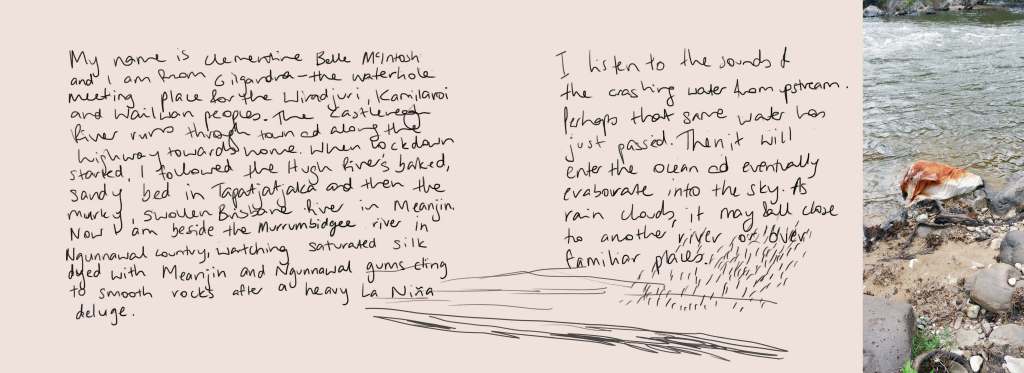 My name is Clementine Belle McIntosh
and I am from Gilgandra – the waterhole
meeting place for the Wiradjuri, Kamilaroi
and Wailwan peoples. The Castlereagh
River runs through town and along the
highway towards home. When lockdown
started, I followed the Hugh River's baked,
sandy bed in Tapatjatjaka and then the
murky, swollen Brisbane River in Meanjin.
Now I am beside the Murrumbidgee river in
Ngunnawal country, watching saturated silk
dyed with Meanjin and Ngunnawal gums cling
to smooth rocks after a heavy La Niña
deluge.
I listen to the sounds of
the crashing water from upstream.
Perhaps that same water has
just passed. Then it will
enter the ocean and eventually
evaborate into the sky. As
rain clouds, it may fall close
to another river or over
familiar places.